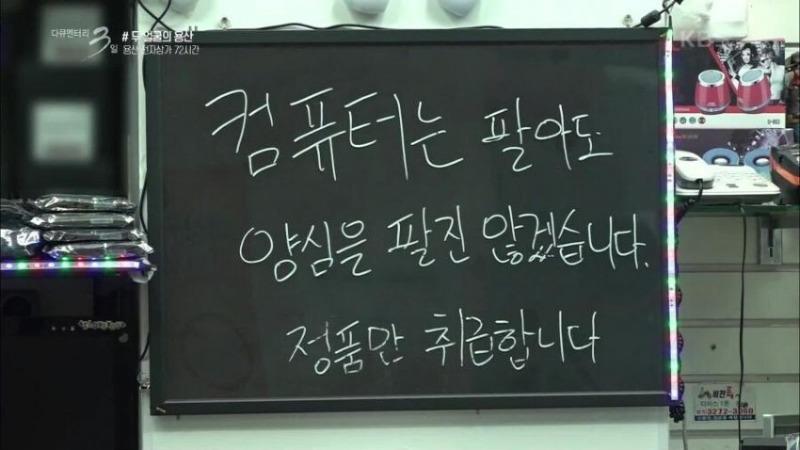 다큐멘터리 3일
# 두 얼굴의 용산
용산 전자상가 72시간
KBS
컴퓨터는 팔아도
양심을 팔진 않겠습니다.
정품만 취급합니다
3272-3260